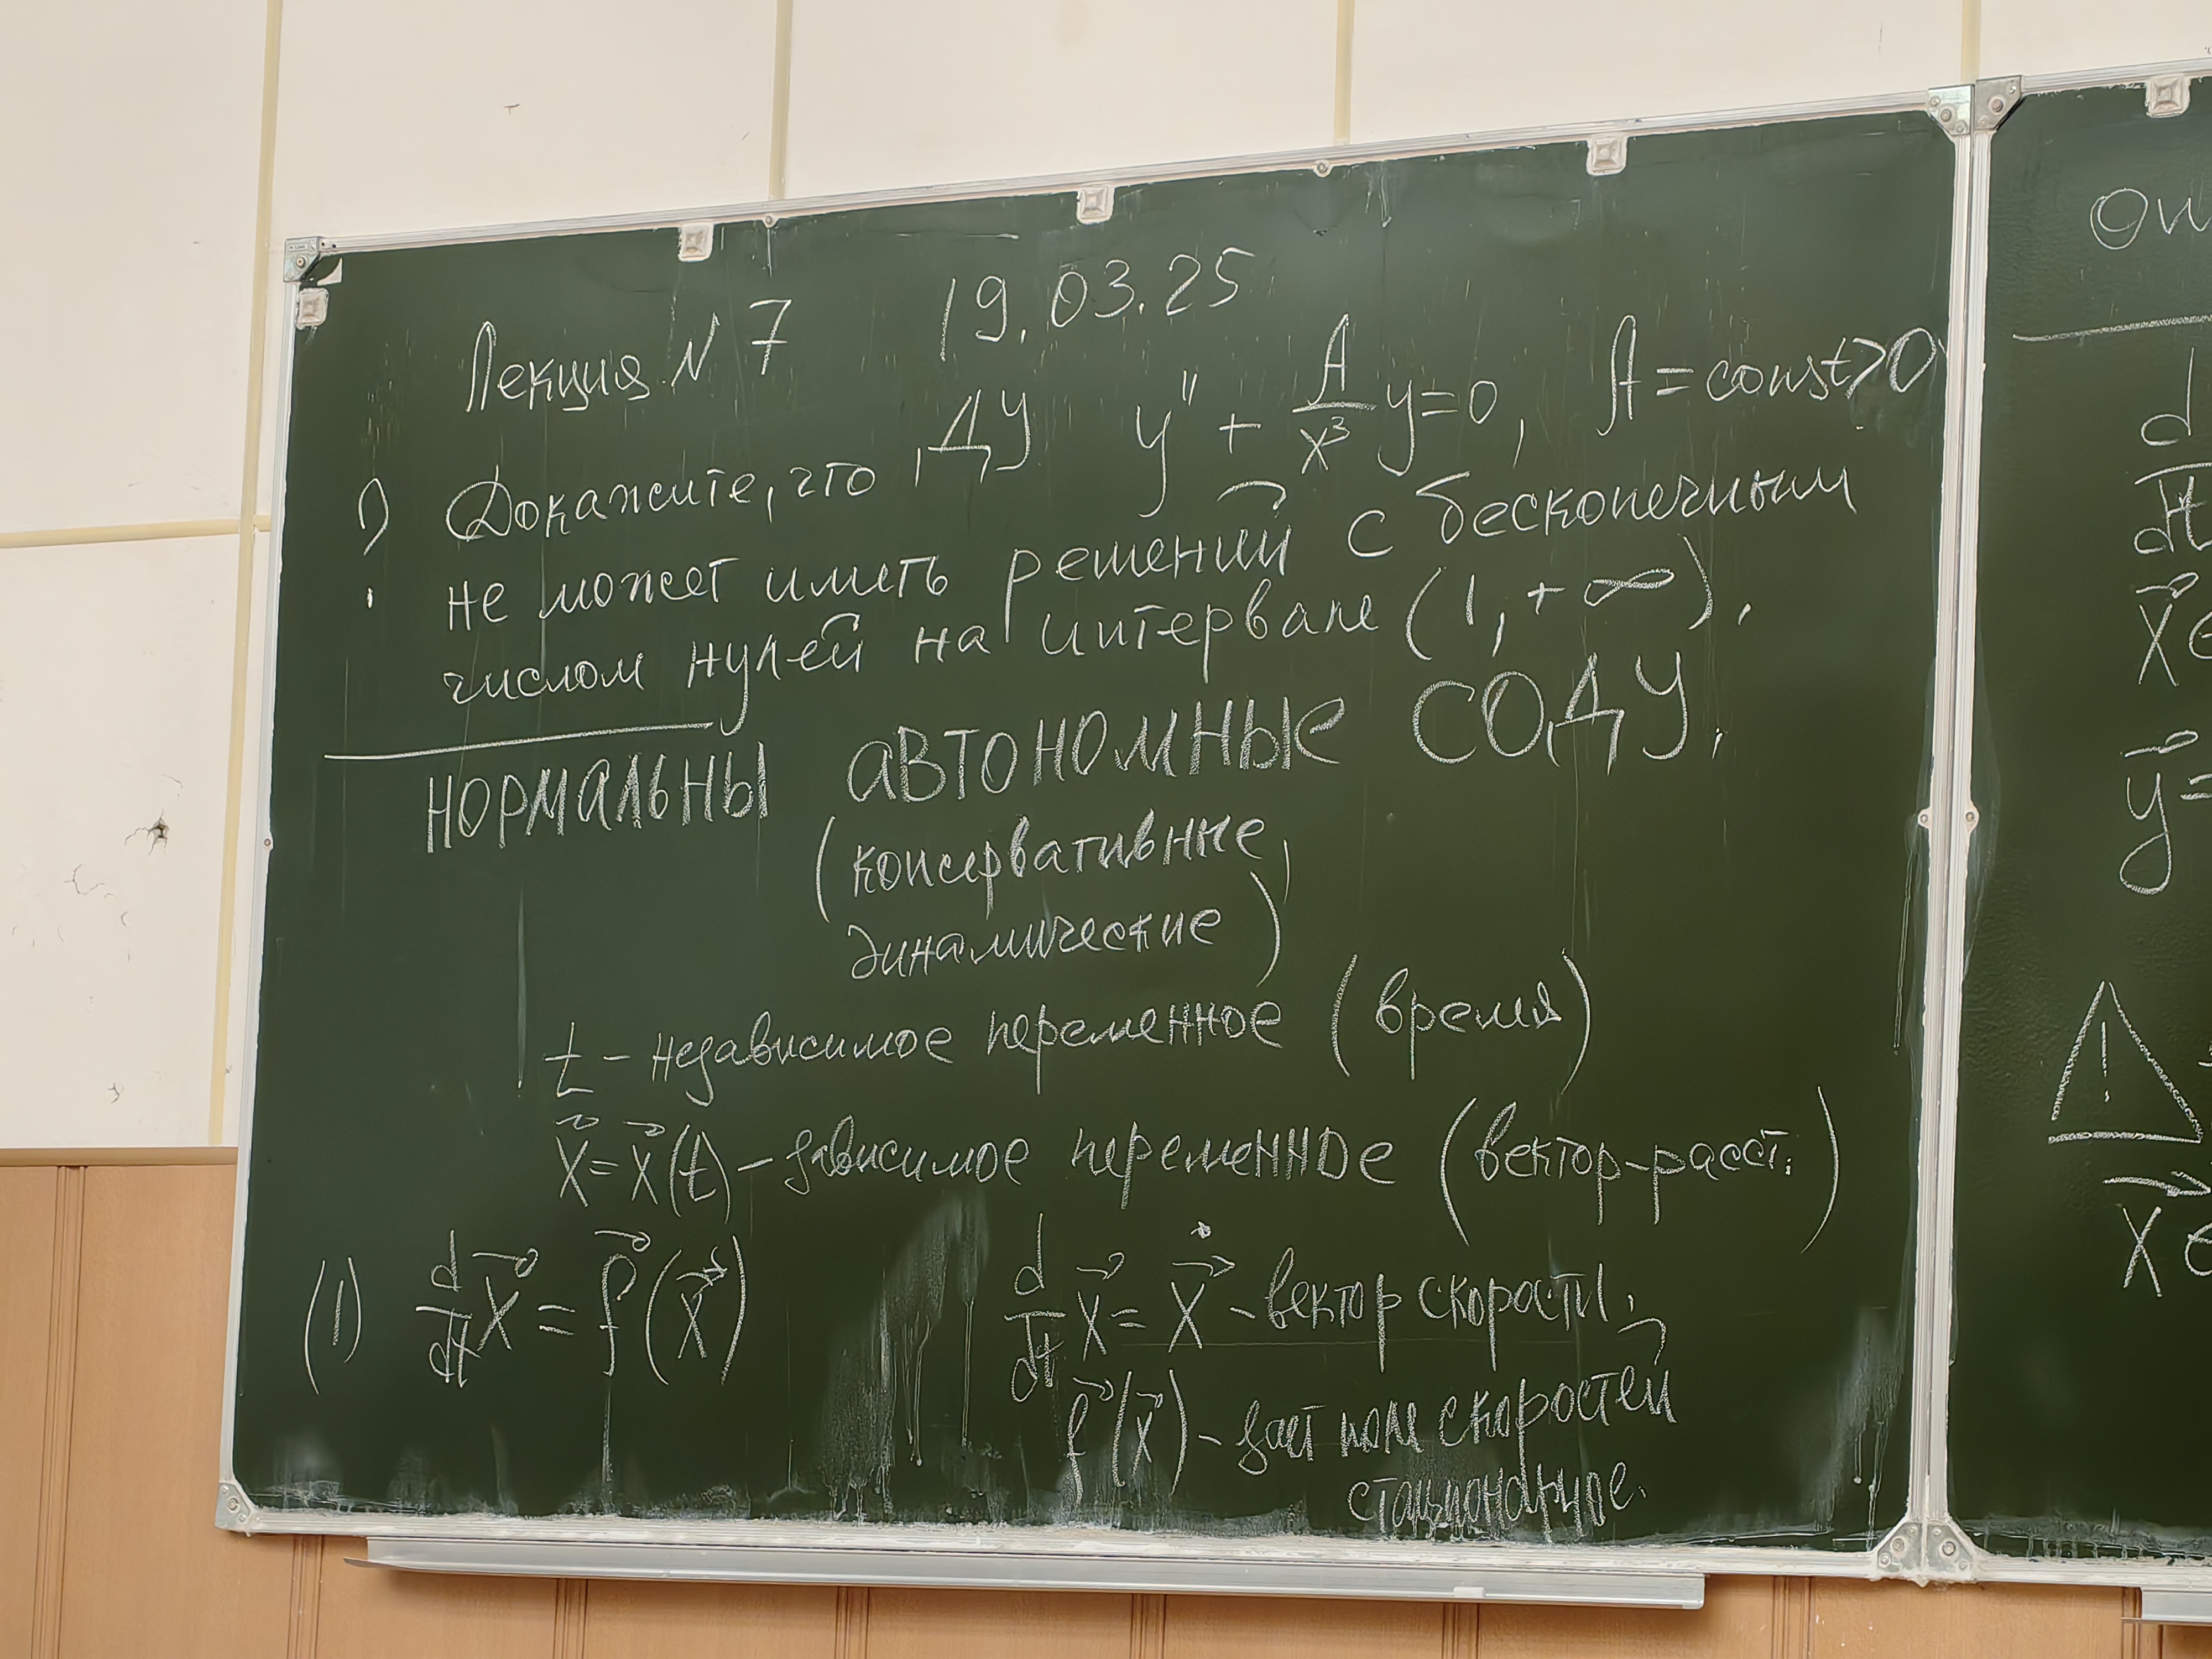 Лекция N 7 19.03.25
? Докажите, что ДУ y'' + A/x³ y = 0, A = const > 0
не может иметь решений с бесконечным
числом нулей на интервале (1, + ∞).
НОРМАЛЬНЫ АВТОНОМНЫЕ СОДУ.
(консервативные,
динамические)
t – независимое переменное (время)
x⃗ = x⃗(t) – зависимое переменное (вектор-расст.)
(1) d/dt x⃗ = f⃗(x⃗) d/dt x⃗ = ẋ⃗ – вектор скорости,
f⃗(x⃗) – поле скоростей
Оп
d/dt
x⃗ ∈
y⃗ =
!
x⃗ ∈